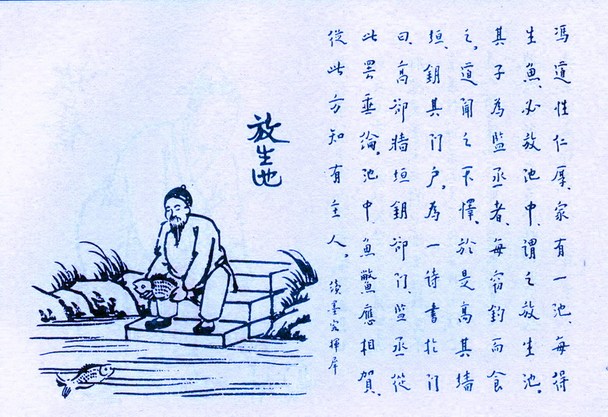 馮道性仁厚、家有一池、每得
生魚、必放池中、謂之放生池。
其子為監丞者、每窃釣而食
之。道聞之不懌、於是高其墻
垣、鑰其門户、為一詩書於門
曰、高卻墻垣鑰卻門、監丞從
此罢垂綸。池中魚鱉應相賀、
從此方知有主人。
續墨客揮犀
放生池